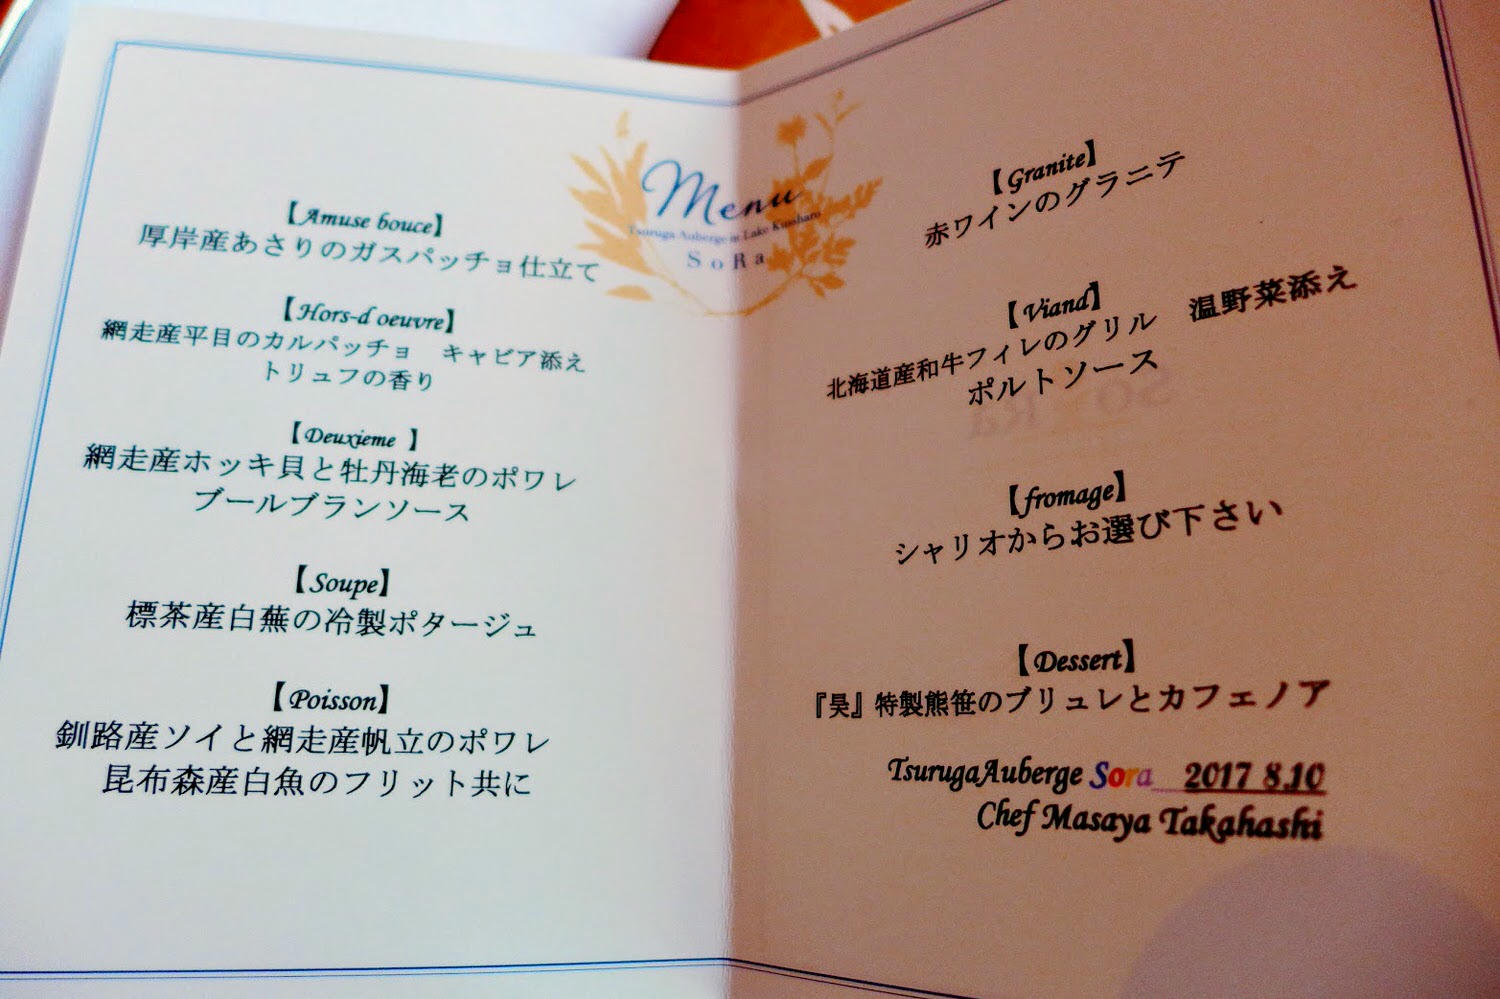 Menu
Tsuruga Auberge at Lake Kussharo
SoRa
【Amuse bouce】
厚岸産あさりのガスパッチョ仕立て
【Hors-d oeuvre】
網走産平目のカルパッチョ　キャビア添え
トリュフの香り
【Deuxieme 】
網走産ホッキ貝と牡丹海老のポワレ
ブールブランソース
【Soupe】
標茶産白蕪の冷製ポタージュ
【Poisson】
釧路産ソイと網走産帆立のポワレ
昆布森産白魚のフリット共に
【Granite】
赤ワインのグラニテ
【Viand】
北海道産和牛フィレのグリル　温野菜添え
ポルトソース
【fromage】
シャリオからお選び下さい
【Dessert】
『昊』特製熊笹のブリュレとカフェノア
TsurugaAuberge Sora 2017 8.10
Chef Masaya Takahashi